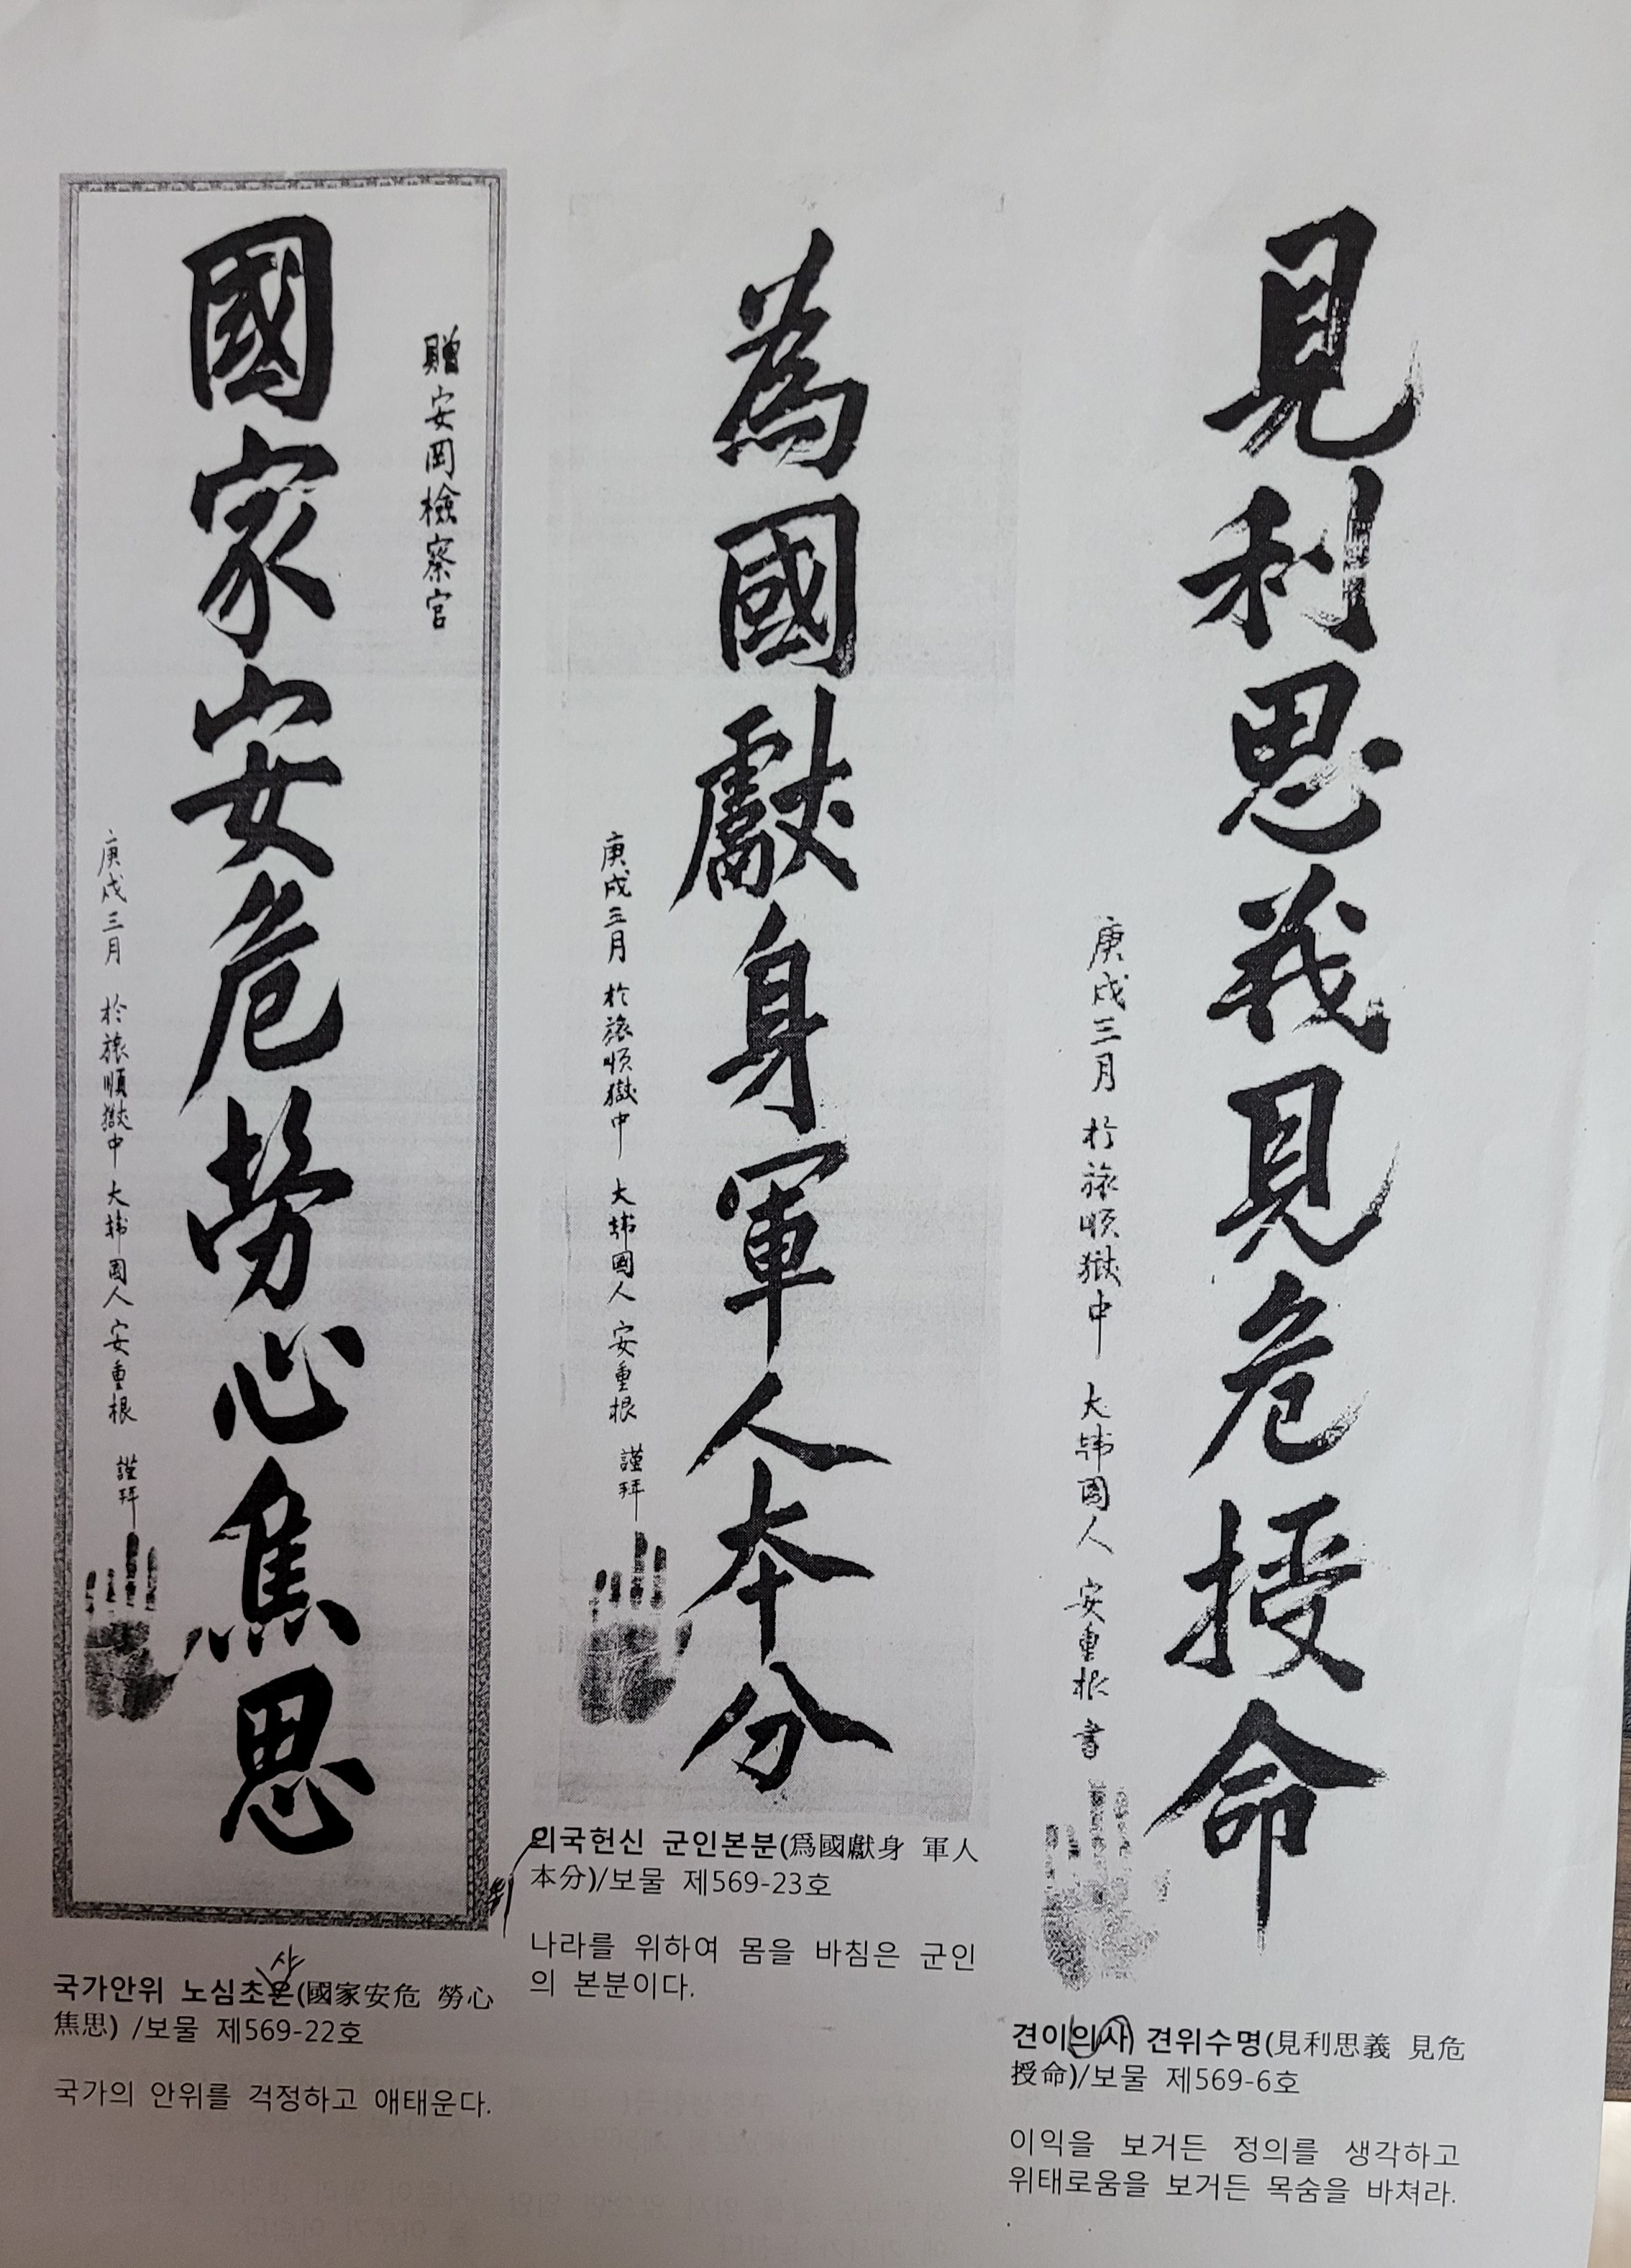 國家安危勞心焦思
贈安岡檢察官
庚戌三月 於旅順獄中 大韓國人 安重根 謹拜
국가안위 노심초온(國家安危 勞心
사
焦思) /보물 제569-22호
국가의 안위를 걱정하고 애태운다.
為國獻身軍人本分
庚戌三月 於旅順獄中 大韓國人 安重根 謹拜
의국헌신 군인본분(爲國獻身 軍人
위
本分)/보물 제569-23호
나라를 위하여 몸을 바침은 군인
의 본분이다.
見利思義見危授命
庚戌三月 於旅順獄中 大韓國人 安重根 書
견이의사 견위수명(見利思義 見危
授命)/보물 제569-6호
이익을 보거든 정의를 생각하고
위태로움을 보거든 목숨을 바쳐라.